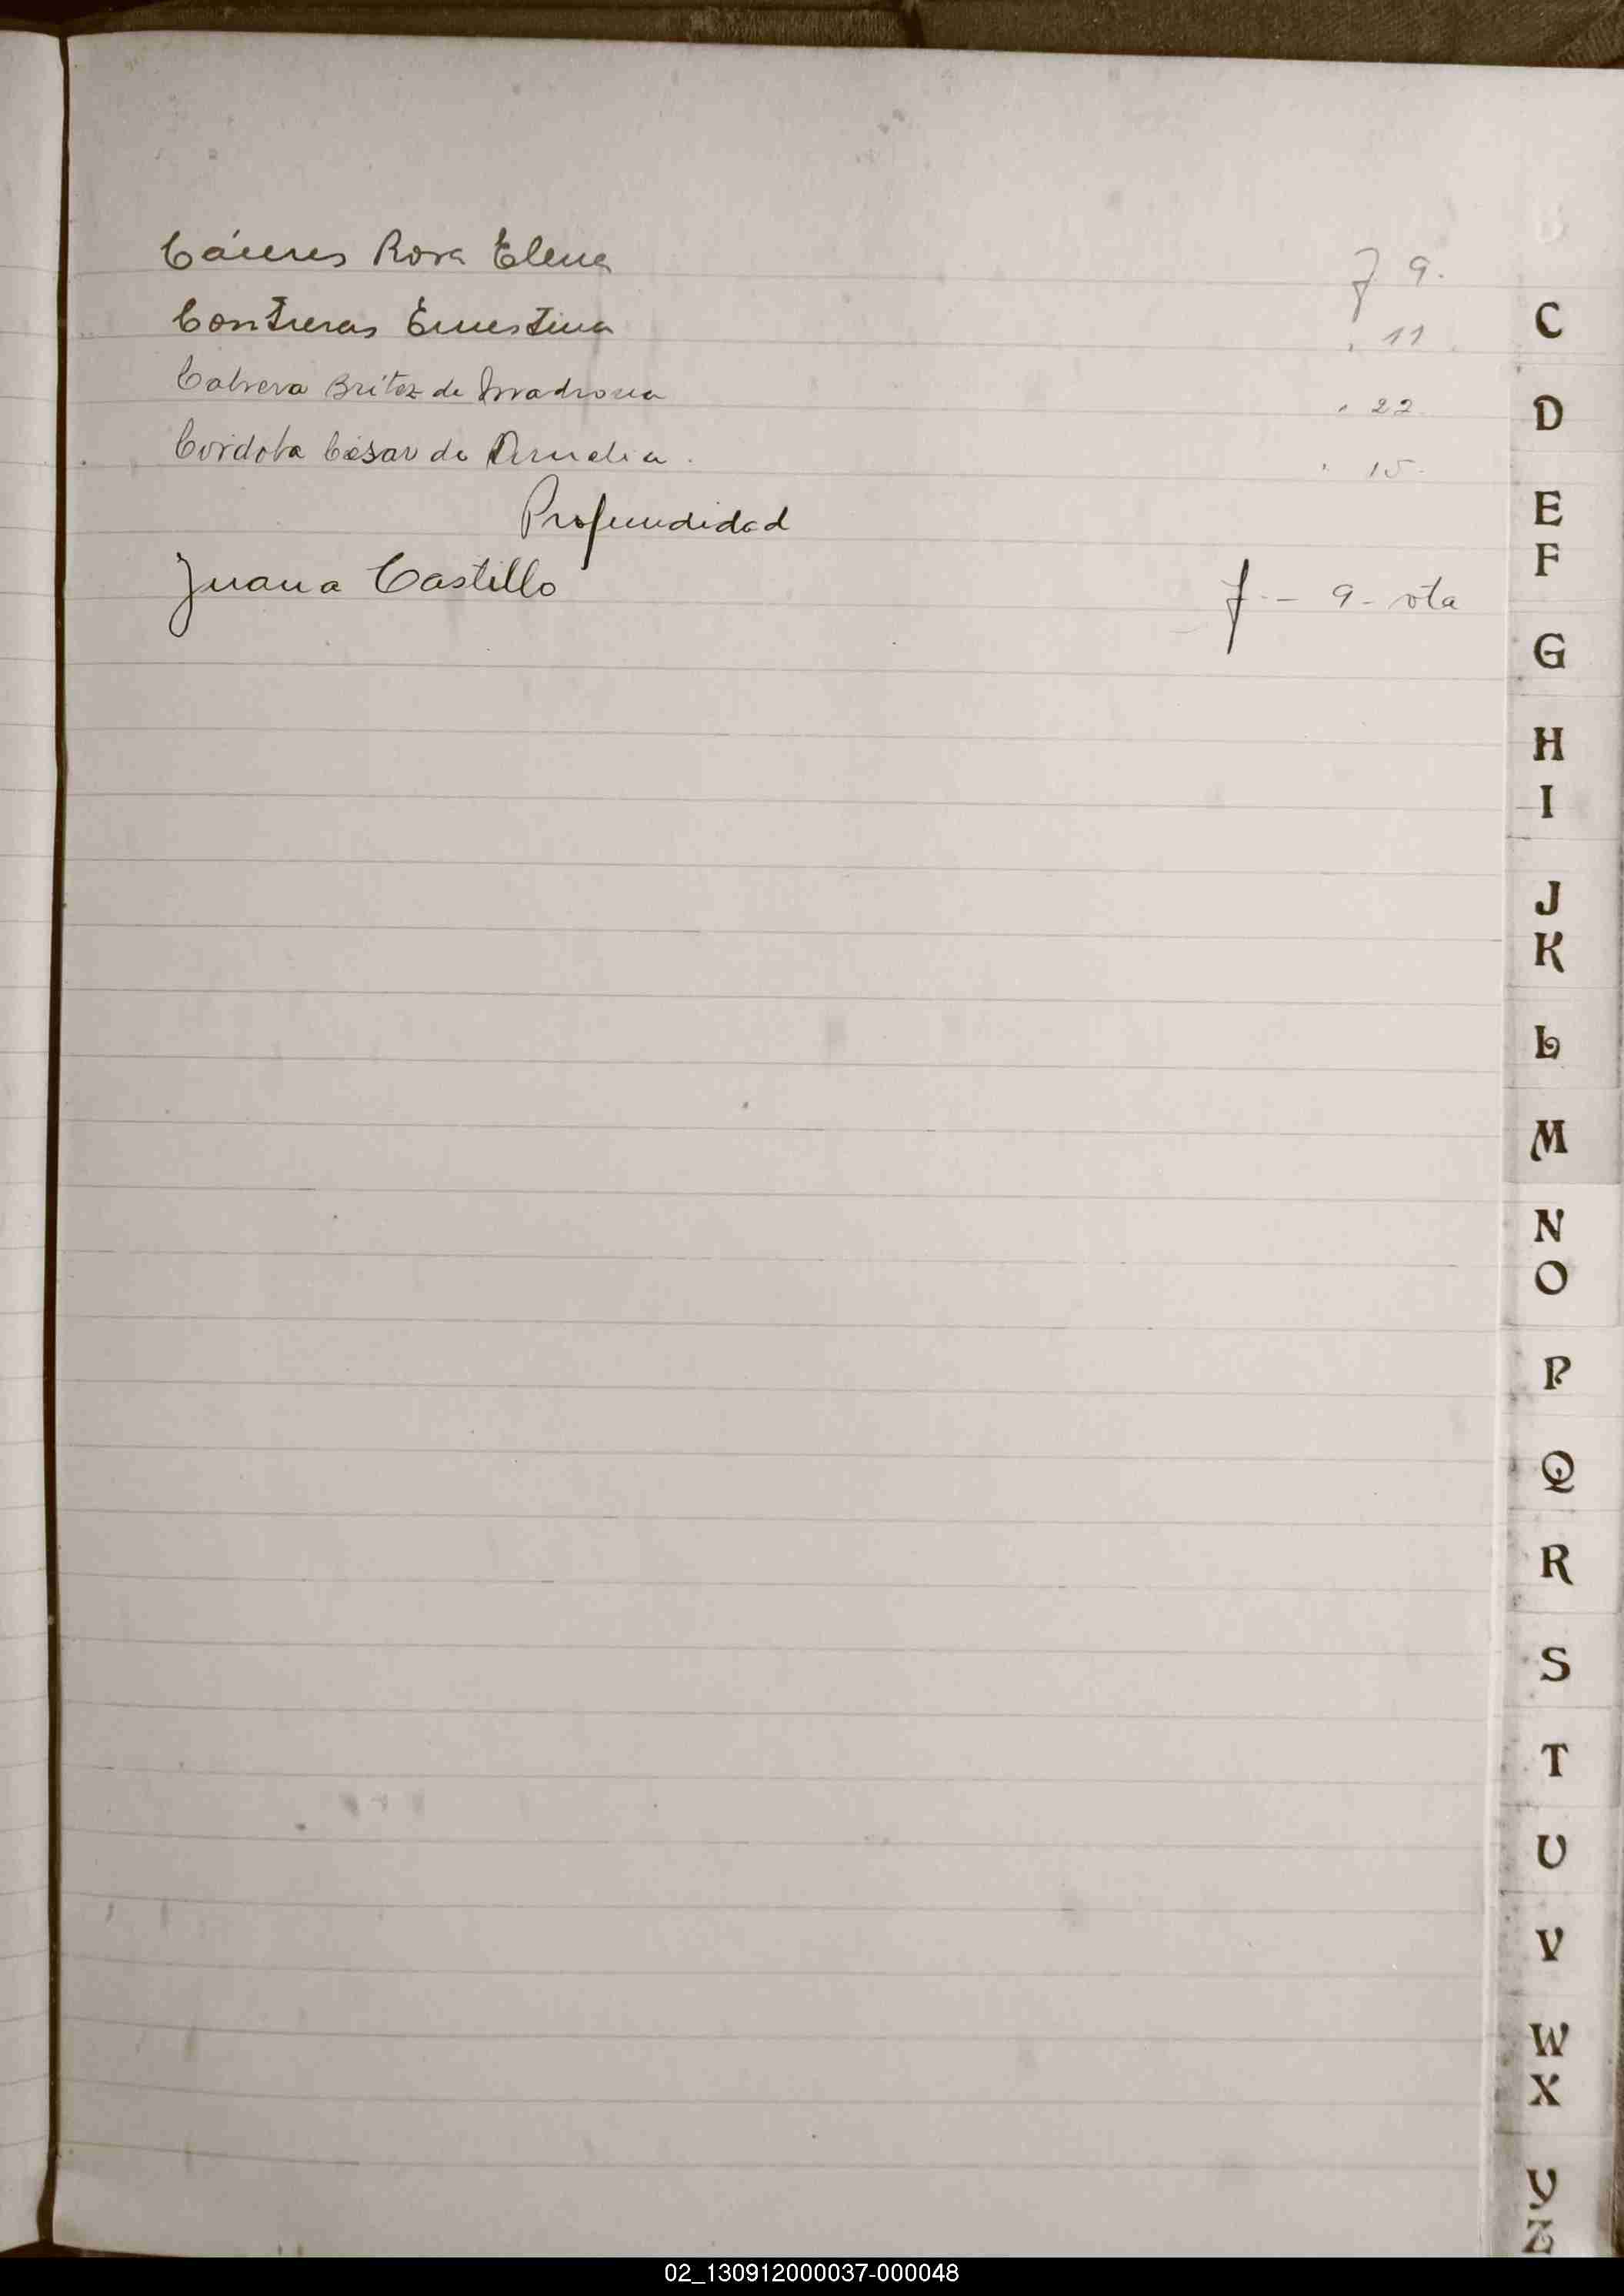 Cáceres Rosa Elena f 9.
Contreras Ernestina " 11
Cabrera Britez de " 22
Cordoba César de Amelia. " 15.
Profundidad
Juana Castillo f - 9 - vta
C
D
E
F
G
H
I
J
K
L
M
N
O
P
Q
R
S
T
U
V
W
X
Y
Z
02_130912000037-000048